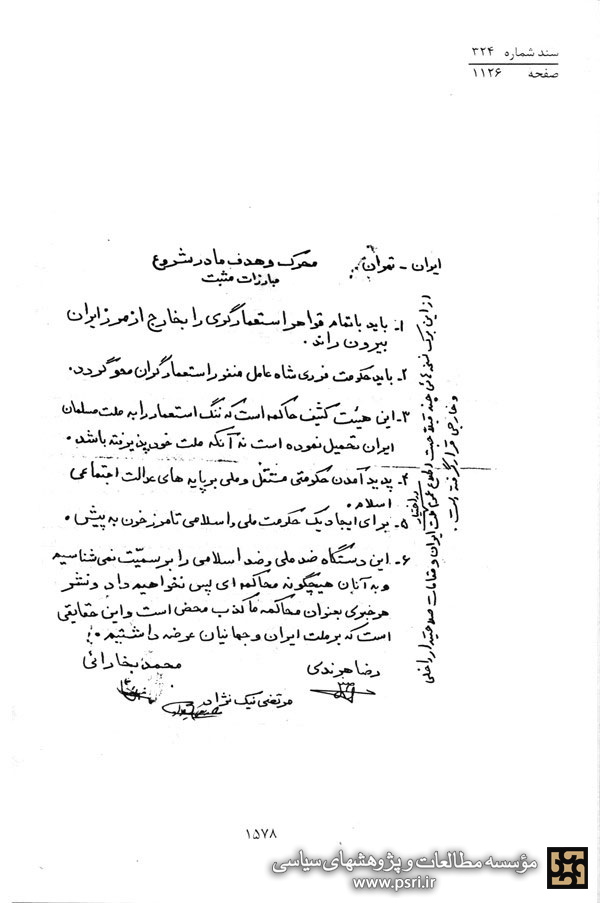 سند شماره ۳۲۴
صفحه ۱۱۲۶
ایران - تهران
محرک و هدف ما در شروع
مبارزات مثبت
۱- باید با تمام قوا هر استعمارگری را بخارج از مرز ایران
بیرون راند.
۲- باید حکومت فردی شاه عامل منفور استعمارگران محو گردد.
۳- این هیئت کثیف حاکمه است که ننگ استعمار را به ملت مسلمان
ایران تحمیل نموده است نه آنکه ملت خود پذیرفته باشد.
۴- پدید آمدن حکومتی مستقل و ملی بر پایه های عدالت اجتماعی
اسلام.
۵- برای ایجاد یک حکومت ملی و اسلامی تا مرز خون به پیش.
۶- این دستگاه ضد ملی و ضد اسلامی را برسمیت نمی شناسیم
و به آنان هیچگونه محاکمه ای پس نخواهیم داد و نشر
هر خبری بعنوان محاکمه ما کذب محض است و این حقایقی
است که بر ملت ایران و جهانیان عرضه داشتیم.
رضا هرندی
محمد بخارائی
مرتضی نیک نژاد
از این برگ نسخه چند جهت اطلاع ملت ایران و مقامات صلاحیتدار داخلی
و خارجی در اختیار قرار گرفته است.
۱۵۷۸
مؤسسه مطالعات و پژوهشهای سیاسی
www.psri.ir